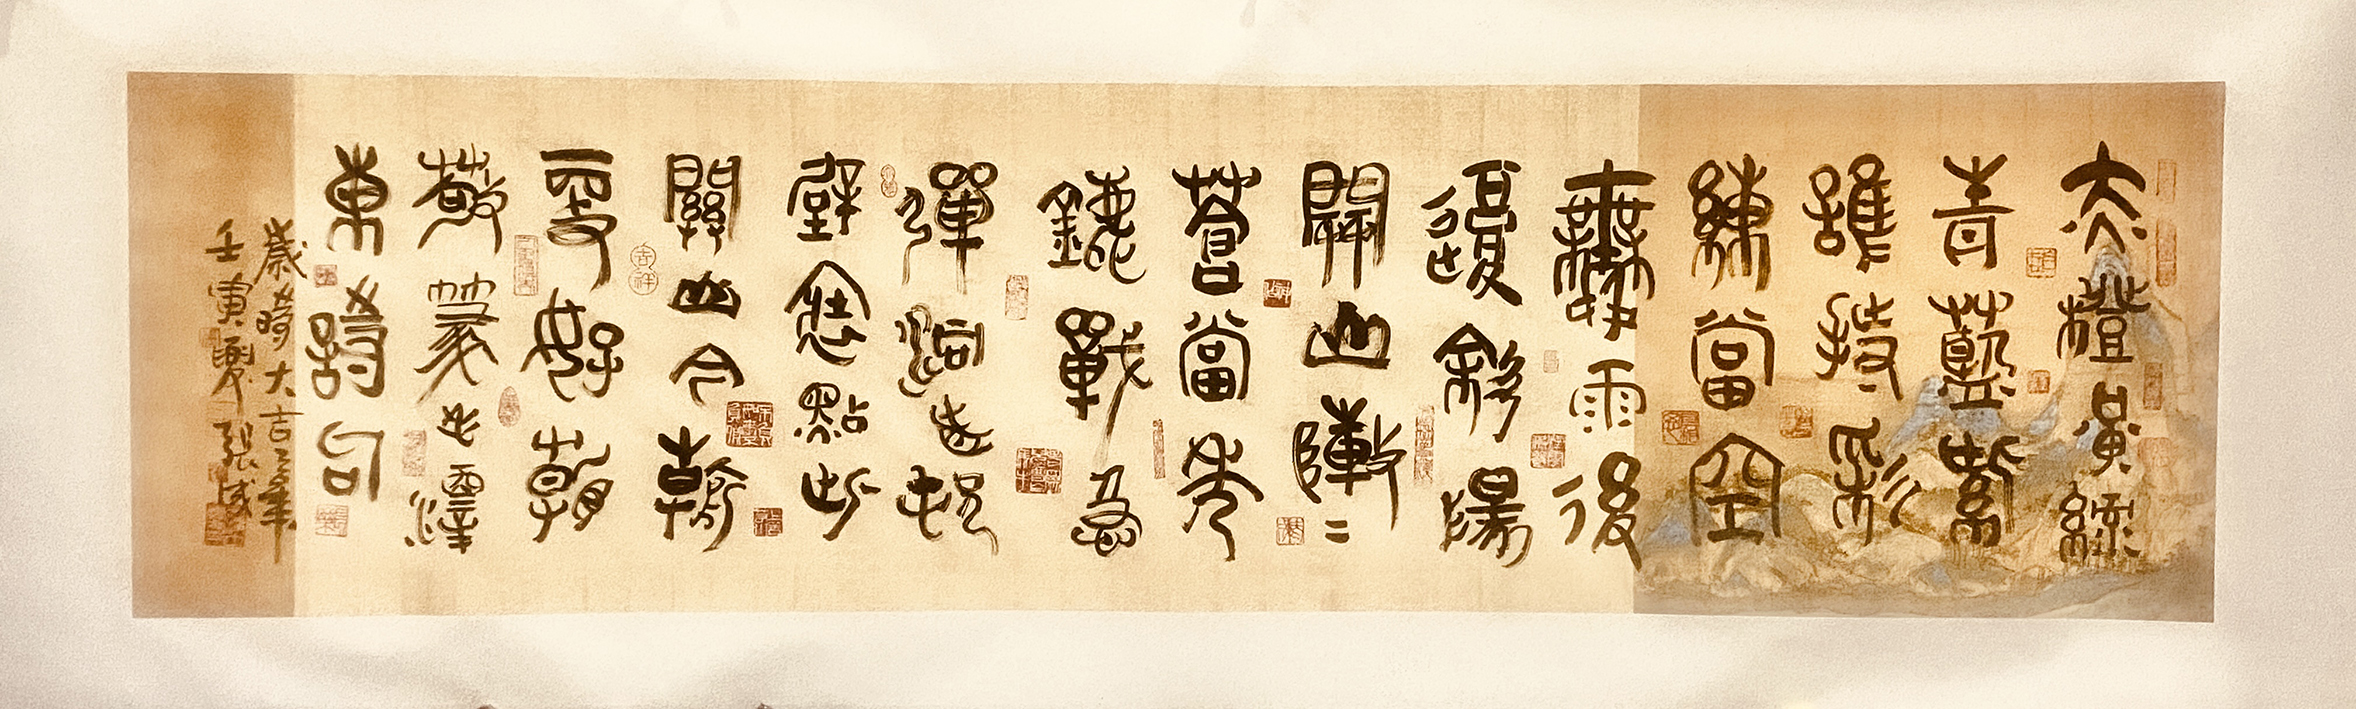 赤橙黃綠
青藍紫
誰持彩
練當空
舞雨後
復斜陽
關山陣二
蒼當年
鏖戰急
彈洞前村
壁裝點此
關山今朝
更好看
敬篆毛澤
東詩句
歲時大吉
壬寅夏